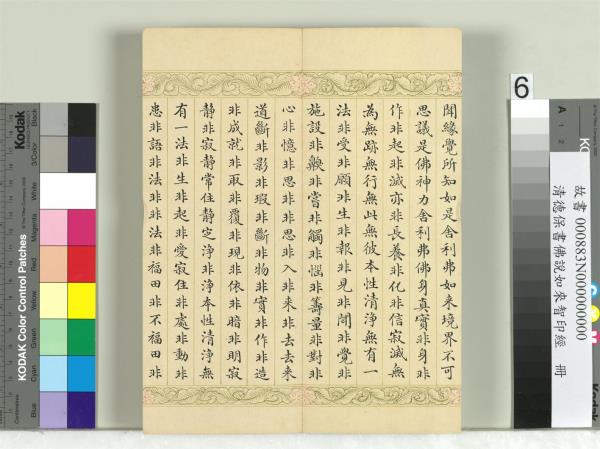 聞緣覺所知如是舍利弗如來境界不可
思議是佛神力舍利弗佛身真實非身非
作非起非滅亦非長養非化非信寂滅無
為無跡無行無此無彼本性清淨無有一
法非受非願非生非報非見非聞非覺非
施設非齅非嘗非觸非惱非籌量非對非
心非憶非思非非思非入非來非去去來
道斷非影非瑕非斷非物非實非作非造
非成就非取非覆非現非依非暗非明寂
靜非寂靜常住靜定淨非淨本性清淨無
有一法非生非起非愛寂住非處非動非
患非語非法非非法非福田非不福田非
6
故書 000883N000000000
清德保書佛說如來智印經 冊
A 1 2
KODAK Color Control Patches
Kodak
Blue
Cyan
Green
Yellow
Red
Magenta
White
3/Color
Black